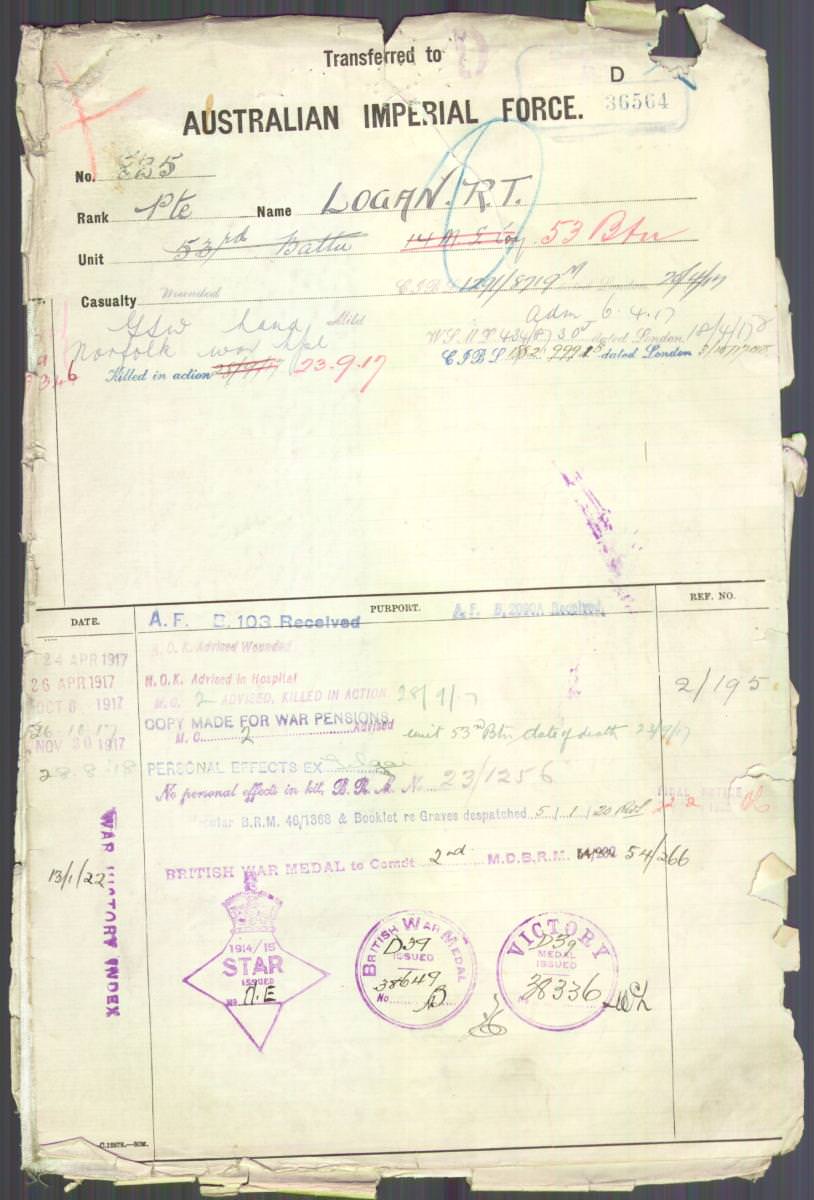 Transferred to
D
36564
AUSTRALIAN IMPERIAL FORCE.
No.
Rank Pte Name LOGAN. R.T.
Unit 53rd Battn 14 M G Coy 53 Btn
Casualty Wounded
GSW hand Mild Adm 6.4.17
Norfolk War Hpl dated London 18/4/17
Killed in action 23.9.17 dated London
DATE. PURPORT. REF. NO.
A. F. B. 103 Received A. F. B. 2090A Received
24 APR 1917 N. O. K. Advised Wounded
26 APR 1917 N.O.K. Advised in Hospital
OCT 6 1917 M. C. 2 ADVISED, KILLED IN ACTION 28/9/17 2/195
26.10.17 COPY MADE FOR WAR PENSIONS
NOV 30 1917 M. C. 2 Advised unit 53rd Btn, date of death 23/9/17
28.8.18 PERSONAL EFFECTS EX
No personal effects in kit, B. R. M. No 23/1256
B.R.M. 46/1368 & Booklet re Graves despatched 5/1/20
13/1/22 BRITISH WAR MEDAL to Comdt 2nd M.D.B.R.M. 54/266
WAR HISTORY INDEX
1914/15
STAR
ISSUED
No. N.E
BRITISH WAR MEDAL
D39
ISSUED
38649
No
VICTORY
D39
MEDAL
ISSUED
38336